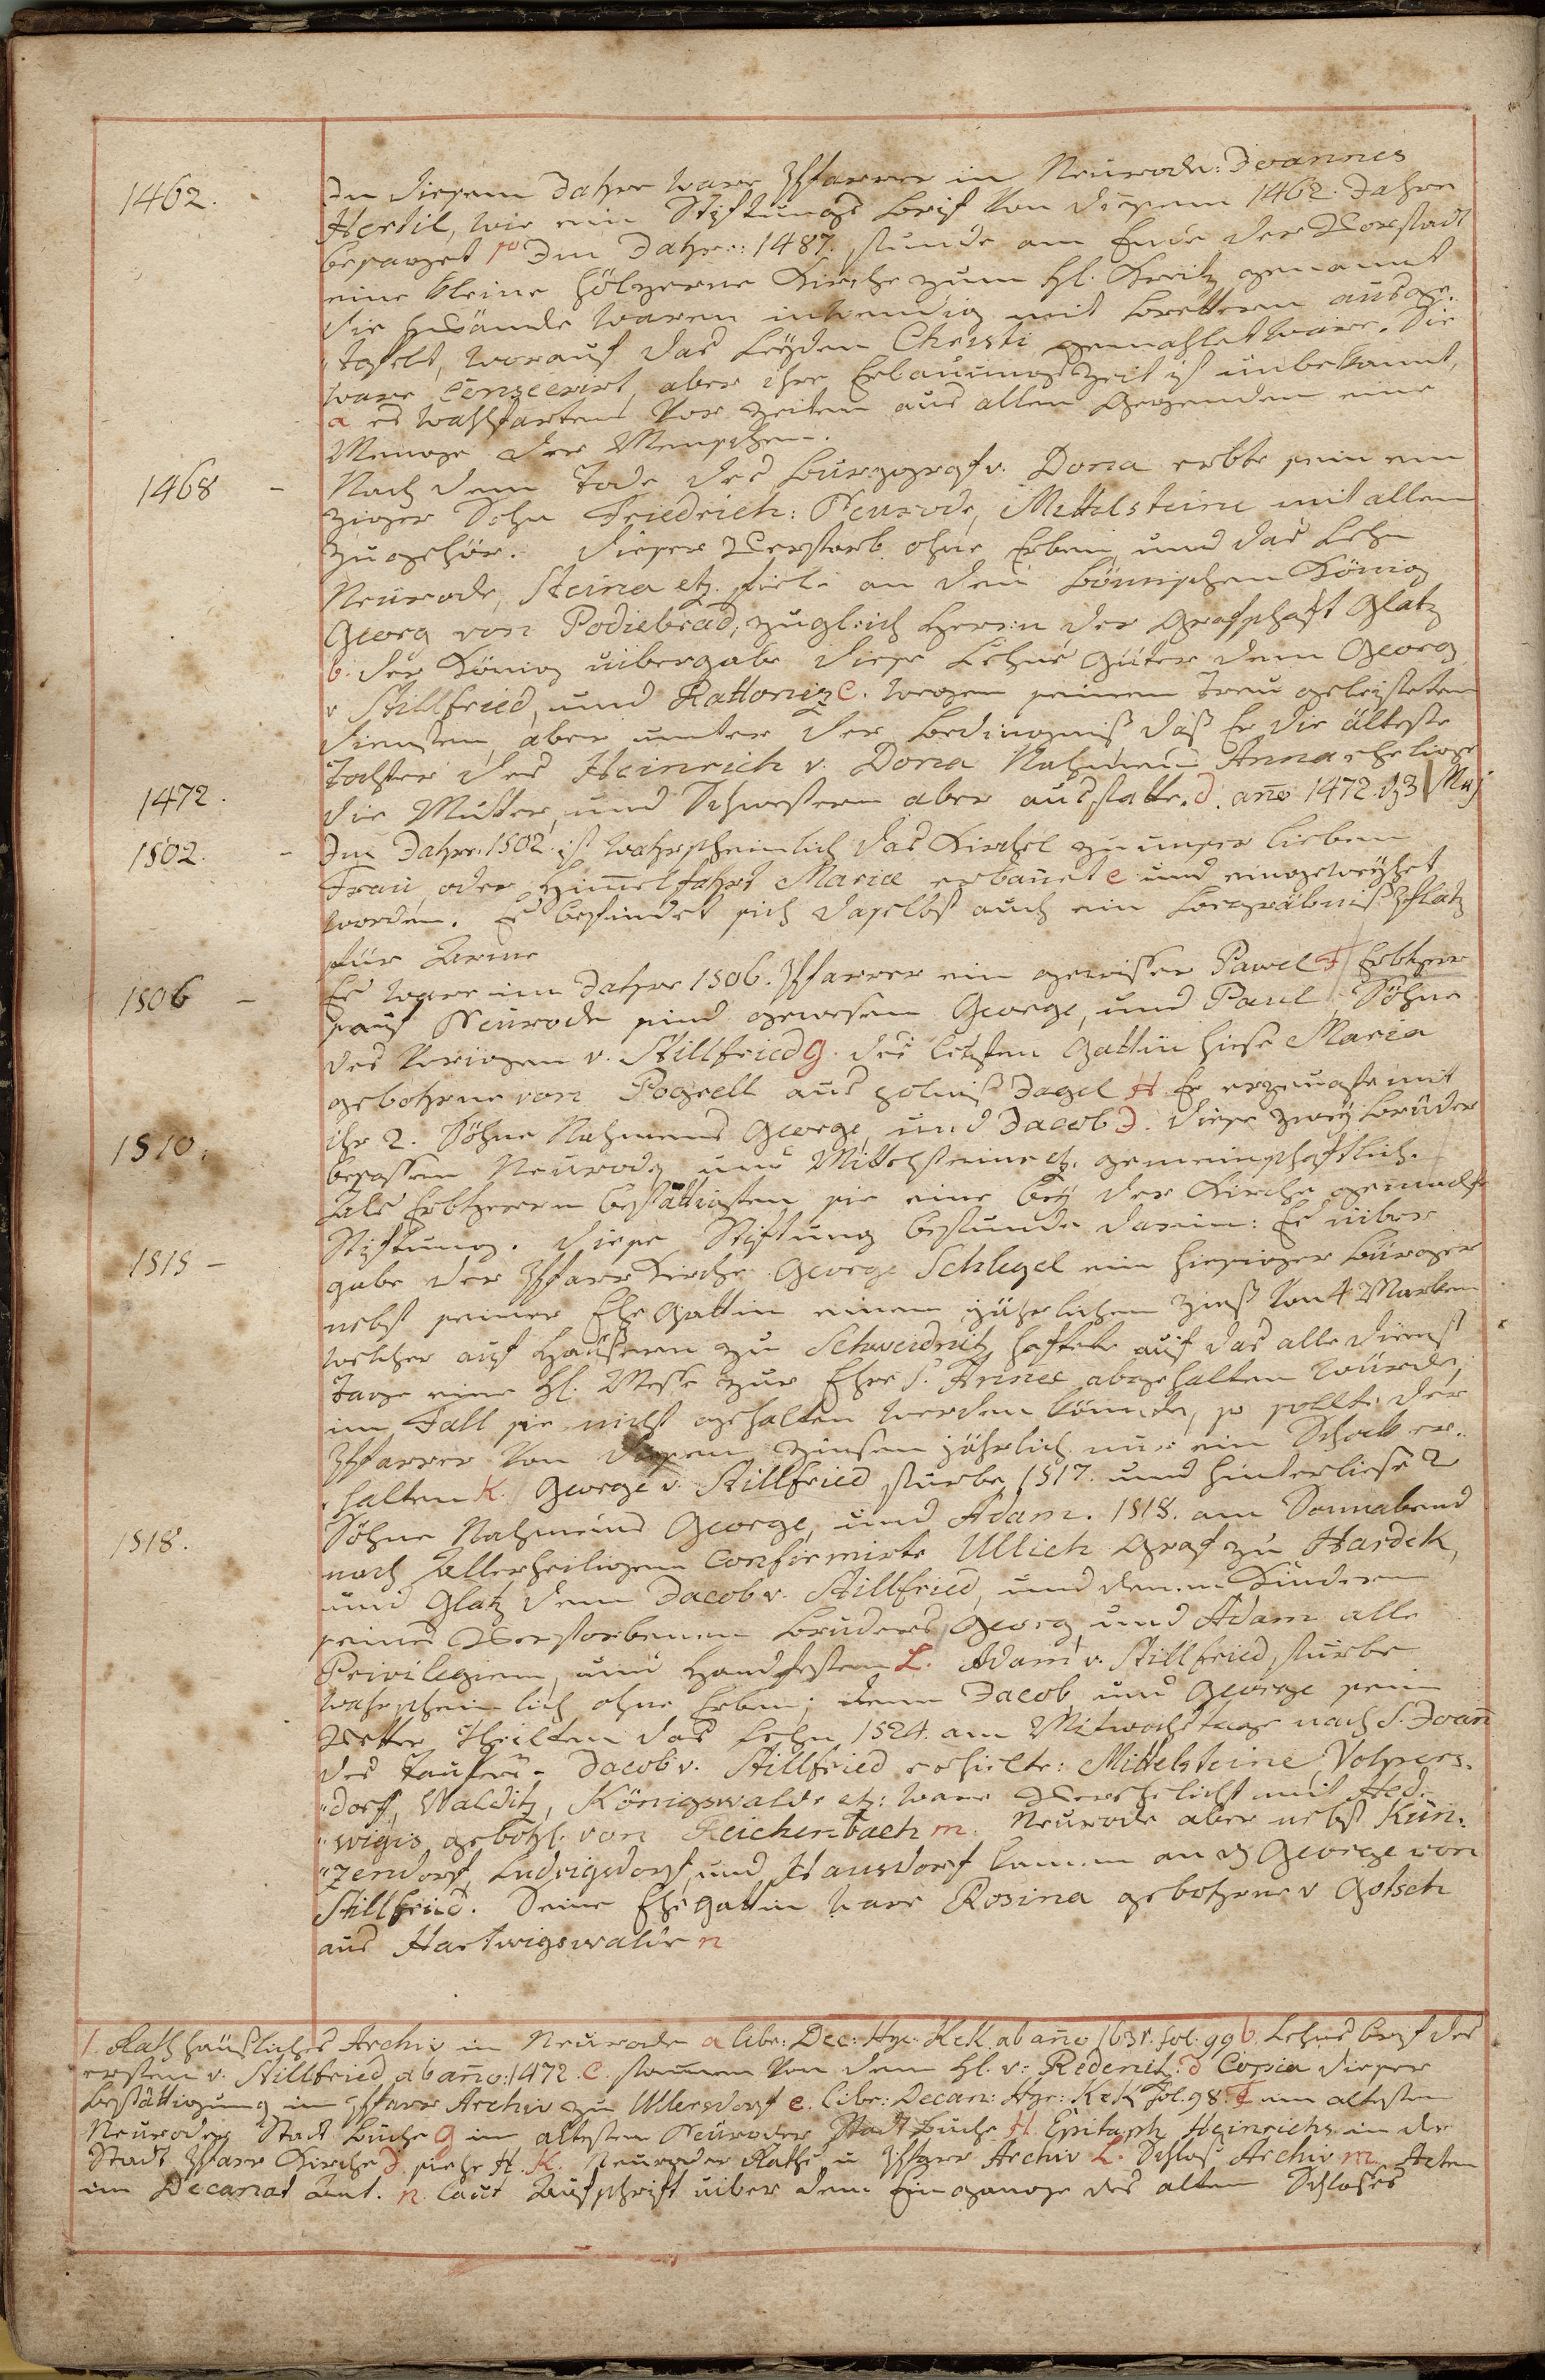 1462. In diesem Jahre ware Pfarrer in Neurode: Joannes
Hertil, wie ein Stiftungs brif von diesem 1462. Jahre
besaget Im Jahre: 1487. stunde am Ende der Vorstadt
eine kleine hölzerne Kirche zum Hl. Kreitz genannt
die Wände waren inwendig mit brettern ausge-
"tafelt, worauf das Leyden Christi gemahlet ware. Sie
ware Consecrirt, aber ihre Erbauungszeit ist unbekannt,
a es wahlfarteten vor zeiten aus allen Gegenden eine
Menge der Menschen.
1468 - Nach dem Tode des Burggraf v. Dona erbte sein ein
ziger Sohn Friedrich: Neurode, Mittelsteine mit allem
zugehör. Dieser Verstarb ohne Erben und das Lehn
Neurode, Steina etz. fiele an den Bömischen König
Georg von Podiebrad, zugleich Herrn der Grafschaft Glatz
b. der König uibergabe diese Lehns güter dem Georg
v Stillfried, und Rattoniz C. wegen seinem treu geleisteten
diensten, aber unter der bedingniß daß Er die älteste
Tochter des Heinrich v. Dona Nahmens Anna eheliche
1472. die Mutter, und Schwestern aber ausstatte. d. ano 1472. d. 3 Maj
1502. - Im Jahre 1502. ist wahrscheinlich das Kirchel zu unser lieben
Frau, oder Himelfahrt Mariæ erbauet e und eingeweyhet
worden. Es befindet sich daselbst auch ein begräbniß Platz
für Arme
1506 - Es ware im Jahre 1506. Pfarrer ein gewisser Pawel F Erbherr
auf Neurode sind gewesen George, und Paul, Söhne
des vorigen v. Stillfried g. des letzten Gattin hiese Maria
gebohrne von Pogrell aus polnisch Jagel H Er erzeugte mit
1510. ihr 2. Söhne Nahmens George, und Jacob J. diese zwey Brüder
besassen Neurode, und Mittelsteine etz. gemeinschaftlich.
Als Erbherrn bestättigten sie eine bey der Kirche gemachte
Stiftung. Diese Stiftung bestunde darin: Es uiber
1515 - gabe der Pfarr Kirche George Schlegel ein hiesiger Bürger
nebst seiner Ehe Gattin einen jährlichen Zinß von 4 Marken
welcher auf Häusern zu Schweidnitz haftete auf das alle Diens
tage eine Hl. Messe zur Ehre S. Annæ abgehalten würde,
im Fall sie nicht gehalten werden könnte, so sollte der
Pfarrer von diesem Zinsen jährlich nur ein Schock er-
"halten K. George v. Stillfried sturbe 1517. und hinterliese 2
1518. Söhne Nahmens George, und Adam. 1518. am Sonnabend
nach Allerheiligen Confirmirte Ullich Graf zu Hardek,
und Glatz dem Jacob v. Stillfried, und denen Kindern
seines Verstorbenen Bruders Georg, und Adam alle
Privilegien, und Handfesten L. Adam v. Stillfried sturbe
wahrscheinlich ohne Erben; denn Jacob und George sein
Vetter theilten das Lehn 1524. am Mitwochstage nach S. Joañ
des Taufers. Jacob v. Stillfried erhielte: Mittelsteine, Volpers-
"dorf, Walditz, Königswalde etz: ware Verehelicht mit Hed-
"wigis gebohr. von Reichenbach m. Neurode aber nebst Kun-
"zendorf, Ludvigsdorf, und Hausdorf kamen an d George von
Stillfried. Seine Ehegattin ware Rosina gebohrne v Gotsch
aus Hartwigswalde n
1. Rathhäusliches Archiv in Neurode a libr: Dec: Hye: Kek. ab ano 1631. fol. 99 b. Lehnsbrif des
ersten v. Stillfried, ab ano: 1472. C. stamen von dem Hl. v: Redenitz: d Copia dieser
Bestättigung im Pfarr Archiv zu Ullersdorf e. libr: Decan: Hye: Kek fol. 98. F im altesten
Neuroder Stadt Buche g im altesten Neuroder Stadt Buche H. Epitaph Heinrichs in der
Stadt Pfarr Kirche J. siehe H. K. Neuroder Raths u Pfarr Archiv L. Schlos Archiv m. Acten
im Decanat Amt. n. laut Aufschrift uiber dem Eingange des alten Schloses